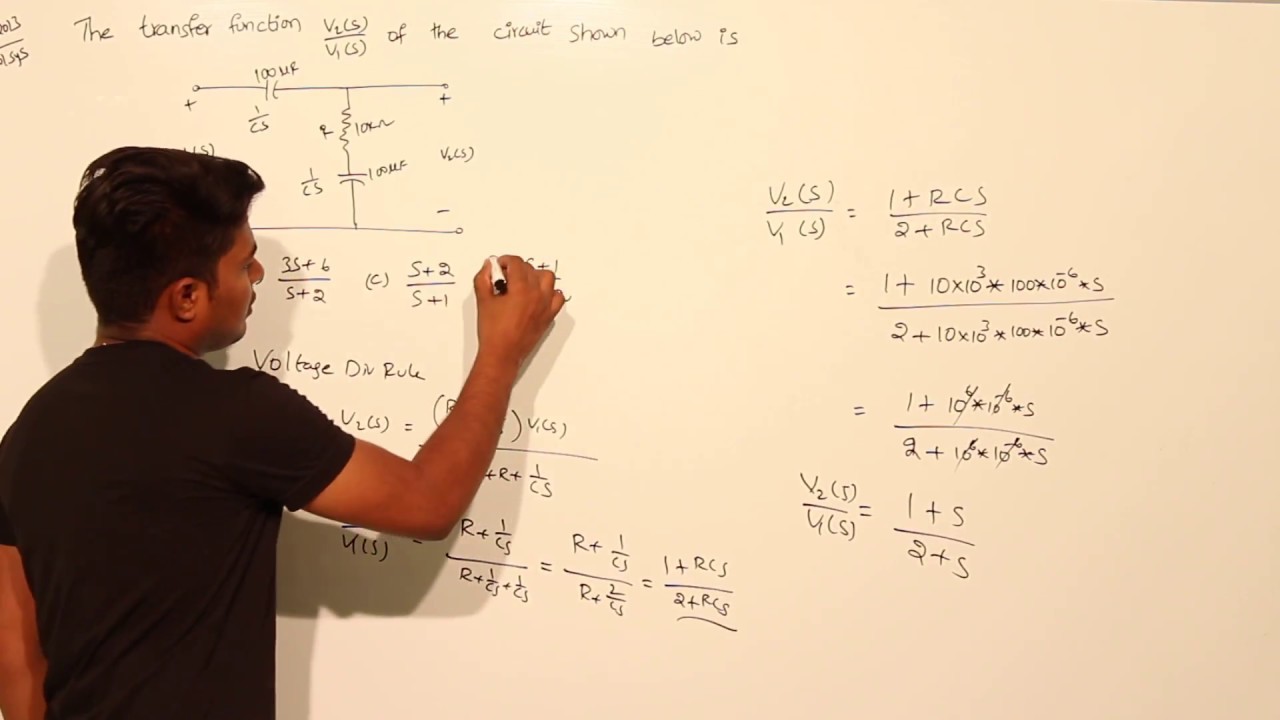 2013
The transfer function V₂(s)/V₁(s) of the circuit shown below is
100µF
+ +
1/CS R 10kΩ
1/CS 100µF V₂(s)
−
3S+6/S+2 (C) S+2/S+1 S+1
Voltage Div Rule
V₂(s) = ( ) V₁(s)
+R+ 1/CS
V₁(s) = R+1/CS / R+1/CS+1/CS = R+1/CS / R+2/CS = 1+RCS / 2+RCS
V₂(S)/V₁(S) = 1+RCS / 2+RCS
= 1+10×10³*100*10⁻⁶*S / 2+10×10³*100*10⁻⁶*S
= 1+10⁶*10⁻⁶*S / 2+10⁶*10⁻⁶*S
V₂(S)/V₁(S) = 1+S / 2+S